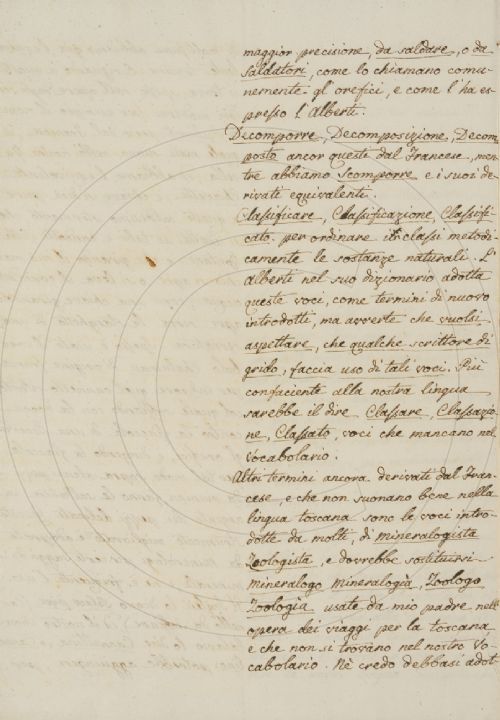 maggior precisione, da saldare, o da
Saldatori, come lo chiamano comu-
nemente gl'orefici, e come l'ha es-
presso l'Alberti.
Dicomporre, Decomposizione, Decom-
posto ancor questi dal Francese, men-
tre abbiamo scomporre e i suoi de-
rivati equivalenti.
Classificare, Classificazione, Classifi-
cato. per ordinare in classi metodi-
camente le sostanze naturali. L'
Alberti nel suo dizionario adotta
queste voci, come termini di nuovo
introdotti, ma avverte che vuolsi
aspettare, che qualche scrittore di
grido, faccia uso di tali voci. Più
confaciente alla nostra lingua
sarebbe il dire Classare, Classazio-
ne, Classato, voci che mancano nel
Vocabolario.
Altri termini ancora derivati dal Fran-
cese, e che non suonano bene nella
lingua toscana sono le voci intro-
dotte da molti, di mineralogista
Zoologista, e dovrebbe sostituirsi
mineralogo mineralogia, Zoologo
Zoologia usate da mio padre nell'
opera dei viaggi per la toscana
e che non si trovano nel nostro Vo-
cabolario. Nè credo debbasi adot-